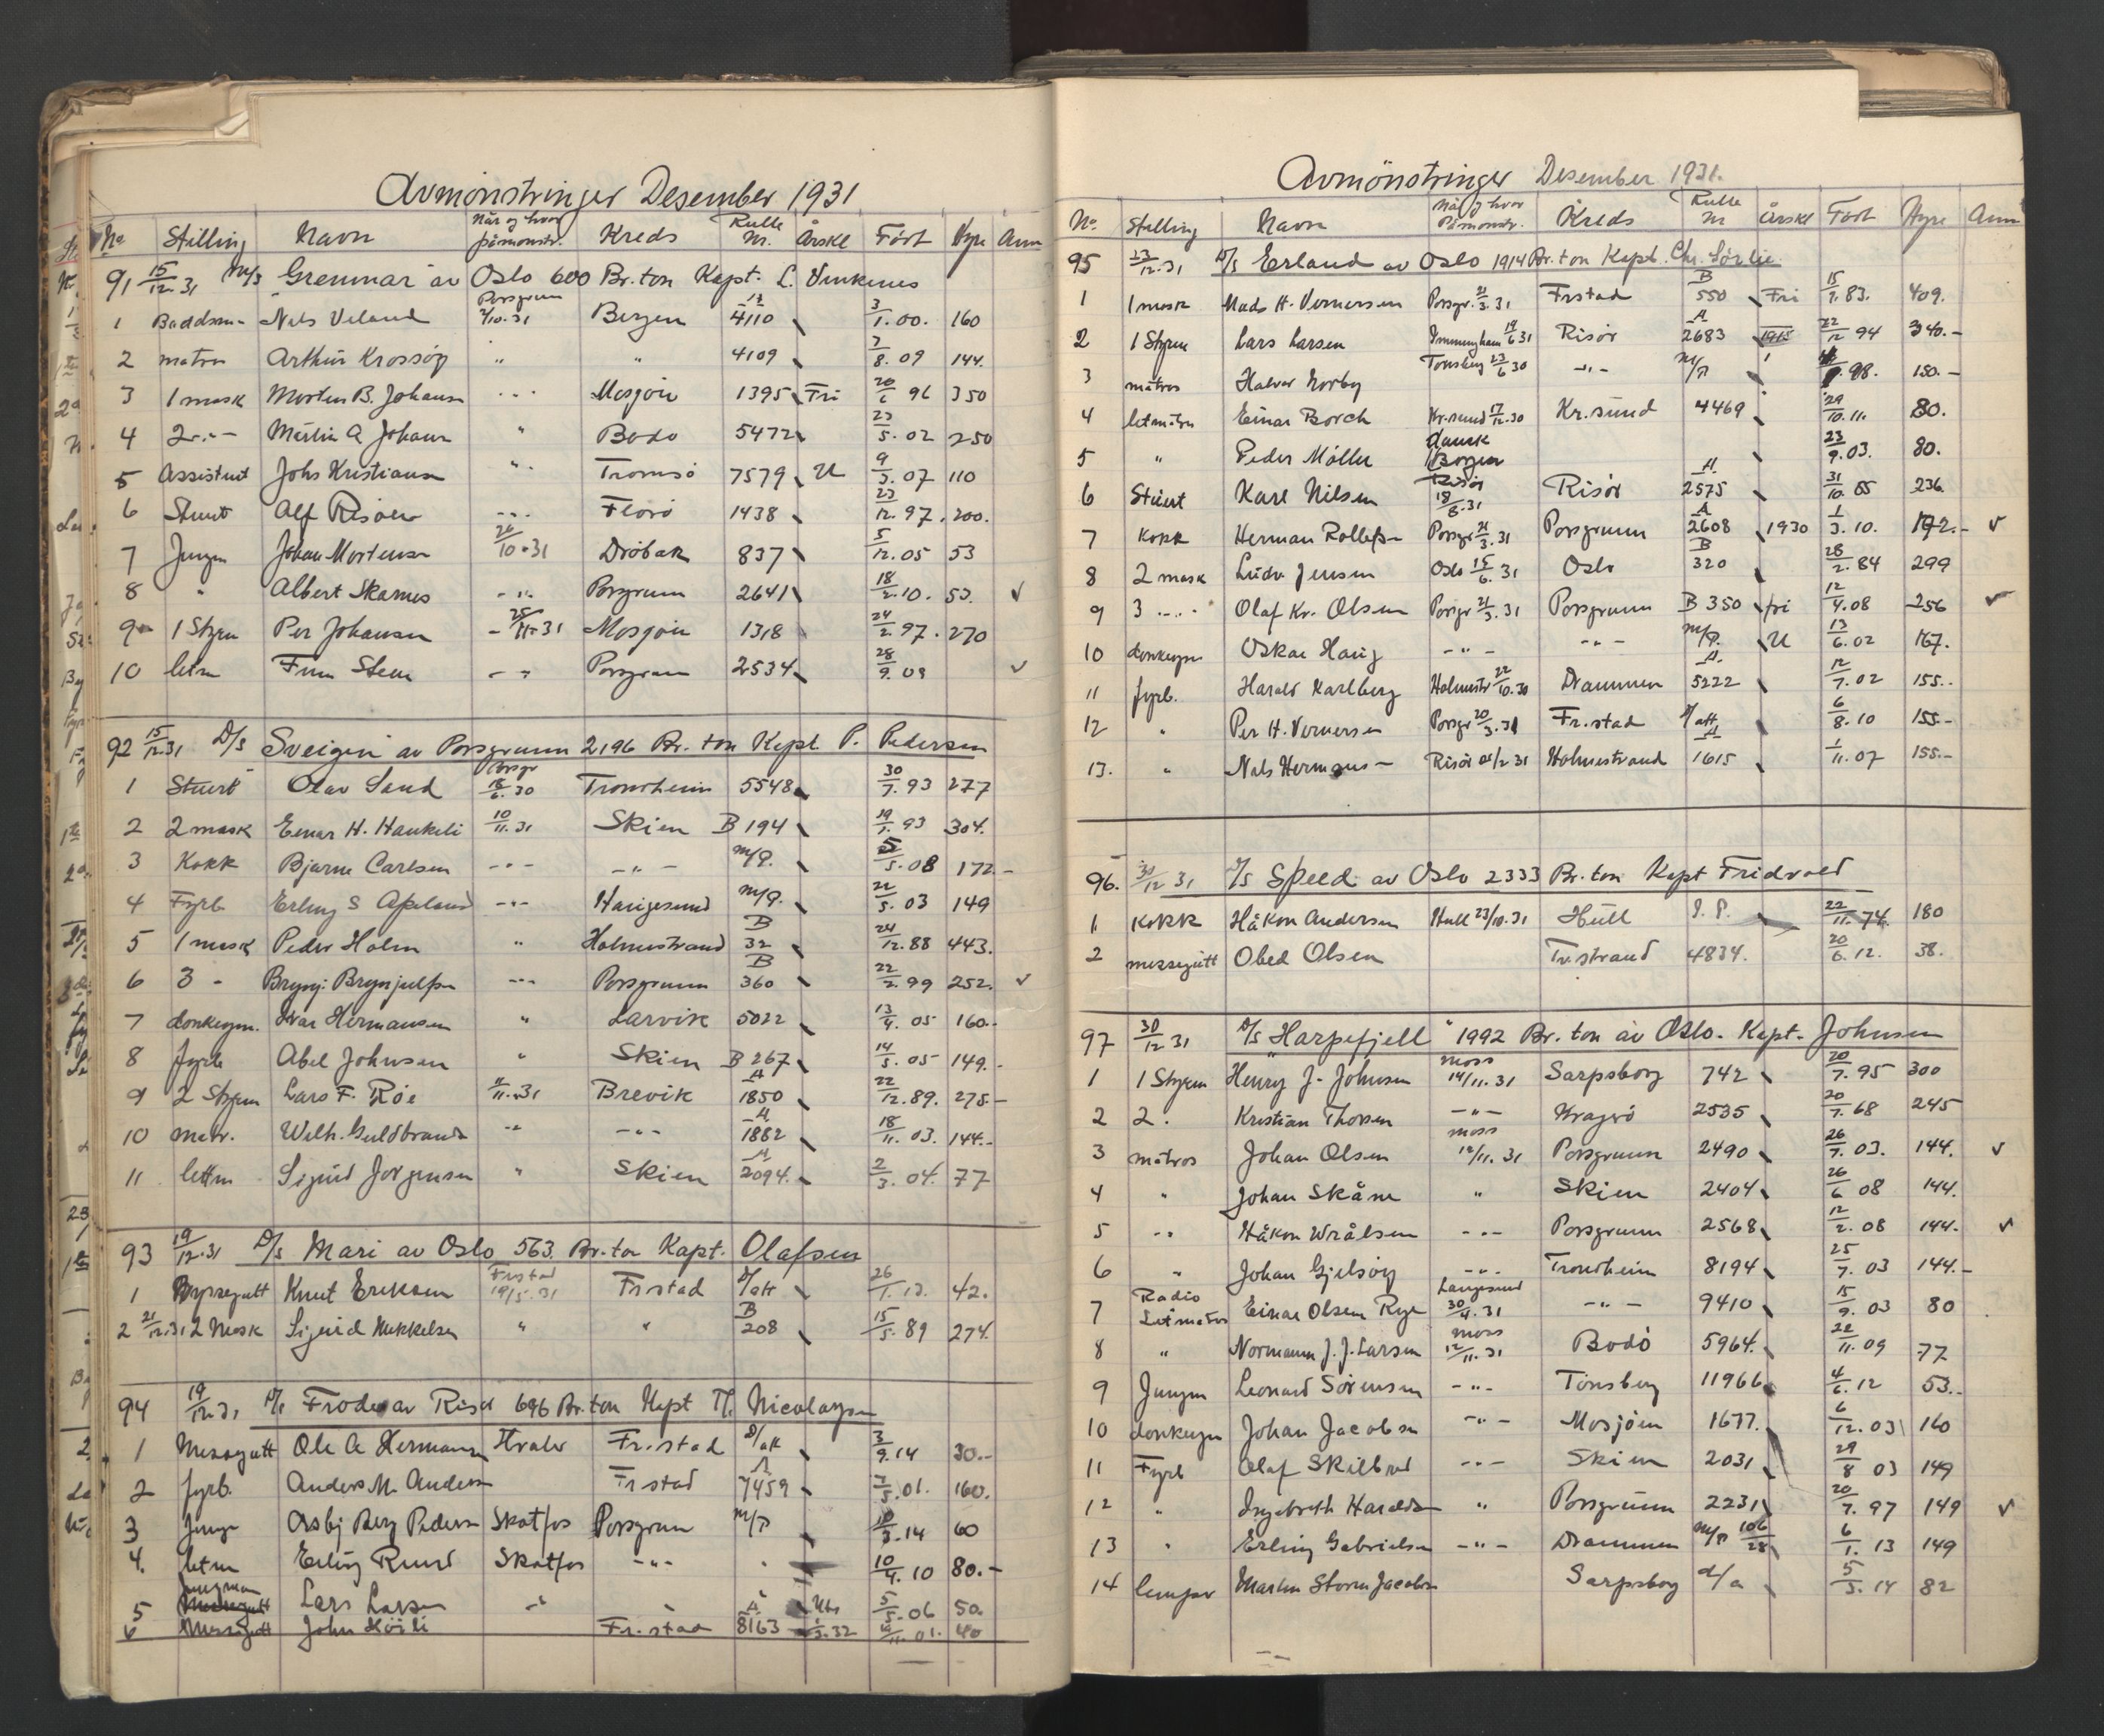 Avmönstringer Desember 1931
No Stilling Navn Når og hvor påmönstr. Kreds Rulle Nr. Årskl Födt Hyre Anm
91 15/12.31 M/S Grennmar av Oslo 600 Br. ton Kapt. L. Vinkenes
1 Baadsm- Nils Veland Porsgrunn 2/10.31 Bergen 4110 3/1.00. 160
2 matros Arthur Krossöy " " 4109 7/8.09 144.
3 1 mask Morten B. Johansen - . - Mosjöen 1395 Fri 20/6 96 350
4 2 - . - Martin A Johans " Bodö 5472 23/5.02 250
5 Assistent Johs Kristiansen " . Tromsö 7579 U 9/3.07 110
6 Stuert Alf Risöen - . - Florö 1438 23/12.97. 200.
7 Jungm Johan Mortensen 26/10.31 Dröbak 837 5/12.05 53
8 " Albert Skarnes - " - Porsgrunn 2641 18/2.10. 53. ✓
9 1 Styrm Per Johansen - 25/11-31 Mosjöen 1318 24/2.97. 270
10 letm Finn Steen - " Porsgrunn 2534 28/9.09 ✓
92 15/12.31 D/S Sveigin av Porsgrunn 2196 Br. ton Kapt P. Pedersen
1 Stuert Olav Sand Porsgr 18/6.30 Trondheim 5548 30/7.93 277
2 2 mask Einar H. Haukeli 10/11.31 Skien B 194 19/1.93 304.
3 Kokk Bjarne Carlsen - " - - " - m/P. 5/5.08 172.-
4 Fyrb Erling S Apeland - " - Haugesund m/P. 22/5.03 149
5 1 mask Peder Holm " Holmestrand B 32 24/12.88 443.
6 3 - Brynj. Brynjulfsen - " - Porsgrunn B 360 22/2.99 252. ✓
7 donkeym. Ivar Hermansen " Larvik 5022 13/4.05 160.-
8 fyrb Abel Johnsen " Skien B 267 14/5.05 149.-
9 2 Styrm Lars F. Röe 11/11.31 Brevik A 1850 22/12.89. 275.-
10 matr. Wilh. Guldbrands - " - " - A 1882 18/11.03. 144.-
11 lettm Sigurd Jörgensen " Skien A 2094. 2/3.04. 77
93 19/12.31 D/S Mari av Oslo 563 Br. ton Kapt. Olafsen
1 Byssegutt Knut Eriksen Frstad 19/5.31 Frstad D/att 26/1.13. 42.
2 21/12.31 2 Mask Sigurd Mikkelsen " " B 208 15/5.89 274.
94 19/12.31 D/S Frode av Risör 696 Br. ton Kapt Th. Nicolaysen
1 Messegutt Ole A Hermansen Hvaler Fr.stad D/att 3/9.14 30.-
2 fyrb. Anders M. Anders Fr stad A 7459 7/5.01. 160.
3 Jungm Asbj Berg Pedersen Skotfos Porsgrunn m/P 10/3.14 60
4. letm Erling Ruud Skotfos - " - 10/4.10 80.-
5 Jungman Lars Larsen - " 5/5.06 50.
6 Messegutt John Köili Fr.stad A 8163 3.32 11.01. 40
Avmönstringer Desember 1931.
No. Stilling Navn Når og hvor Påmönstr. Kreds Rulle Nr Årskl Födt Hyre Anm
95 23/12.31 D/S Erland av Oslo 1914 Br. ton Kapt. Chr. Sörlie
1 1 mask Mads H. Vernersen Porsgr. 21/3.31 Frstad B 550 Fri 15/7.83. 409.
2 1 Styrm Lars Larsen Immingham 19/6 31 Risör A 2683 1915 22/12 94 340.-
3 matros Halvor Norby Tönsberg 23/6 30 - " - m/P .98. 150.-
4 letmatrs Einar Borch Kr.sund 17/12.30 Kr.sund 4469 29/10.11. 80.
5 " Peder Möller dansk Borger 23/9.03. 80.
6 Stuert Karl Nilsen Risör 18/8.31 Risör A 2575 31/10.85 236.
7 Kokk Herman Rollefsen Porsgr 21/3.31 Porsgrunn A 2608 1930 1/3.10. 172.- ✓
8 2 mask Ludv Jensen Oslo 15/6.31 Oslo B 320 28/2.84 299
9 3 - . - Olaf Kr. Olsen Porsgr 21/3.31 Porsgrunn B 350 fri 12/4.08 256 ✓
10 donkeym Oskar Haug - " - - " - m/P. U 13/6.02 167.
11 fyrb. Harald Karlberg Holmestr 22/10.30 Drammen A. 5222 12/7.02 155.-
12 " Per H. Vernersen Porsgr 20/3.31 Fr.stad D/att 6/8.10 155.-
13. " Nils Hermans- Risör 21/2 31 Holmestrand A 1615 1/11.07 155.-
96. 30/12 31 D/S Speed av Oslo 2333 Br. ton Kapt Fridvald
1 Kokk Håkon Andersen Hull 23/10.31 Hull P.P. 22/11.74. 180
2 messegutt Obed Olsen Tv.strand 4834. 20/6.12. 38.
97 30/12 31 D/S "Harpefjell" 1992 Br. ton av Oslo. Kapt. Johnsen
1 1 Styrm Henry J. Johnsen Moss 14/11.31 Sarpsborg 742 20/7.95 300
2 2. Kristian Thorsen - " - Kragerö 2535 20/7.68 245
3 matros Johan Olsen Moss 12/11.31 Porsgrunn 2490 26/7.03. 144. ✓
4 " Johan Skåne " Skien 2404 26/6 08 144.
5 - " Håkon Wrålsen - " - Porsgrunn 2568 12/2.08 144. ✓
6 " Johan Gjelsöy - " - Trondheim 8194 25/7.03 144.-
7 Radio Letmatros Einar Olsen Rye Langesund 30/4.31 - " - 9410 15/9.03 80
8 " Normann J. J. Larsen Moss 12/11.31 Bodö 5964. 22/11.09 77
9 Jungm Leonard Sörensen - " - Tönsberg 11966 4/6.12 53.-
10 donkeym Johan Jacobsen - " - Mosjöen 1677. 6/12.03 160
11 Fyrb Olaf Skilbred - " - Skien 2031 29/8 03 149
12 " Ingebreth Haralds " Porsgrunn 2231 20/7.97 149 ✓
13 " Erling Gabrielsen - " - Drammen m/P 106/28 6/1.13 149
14 lemper Martin Storm Jacobs Sarpsborg d/a 5/3.14 82